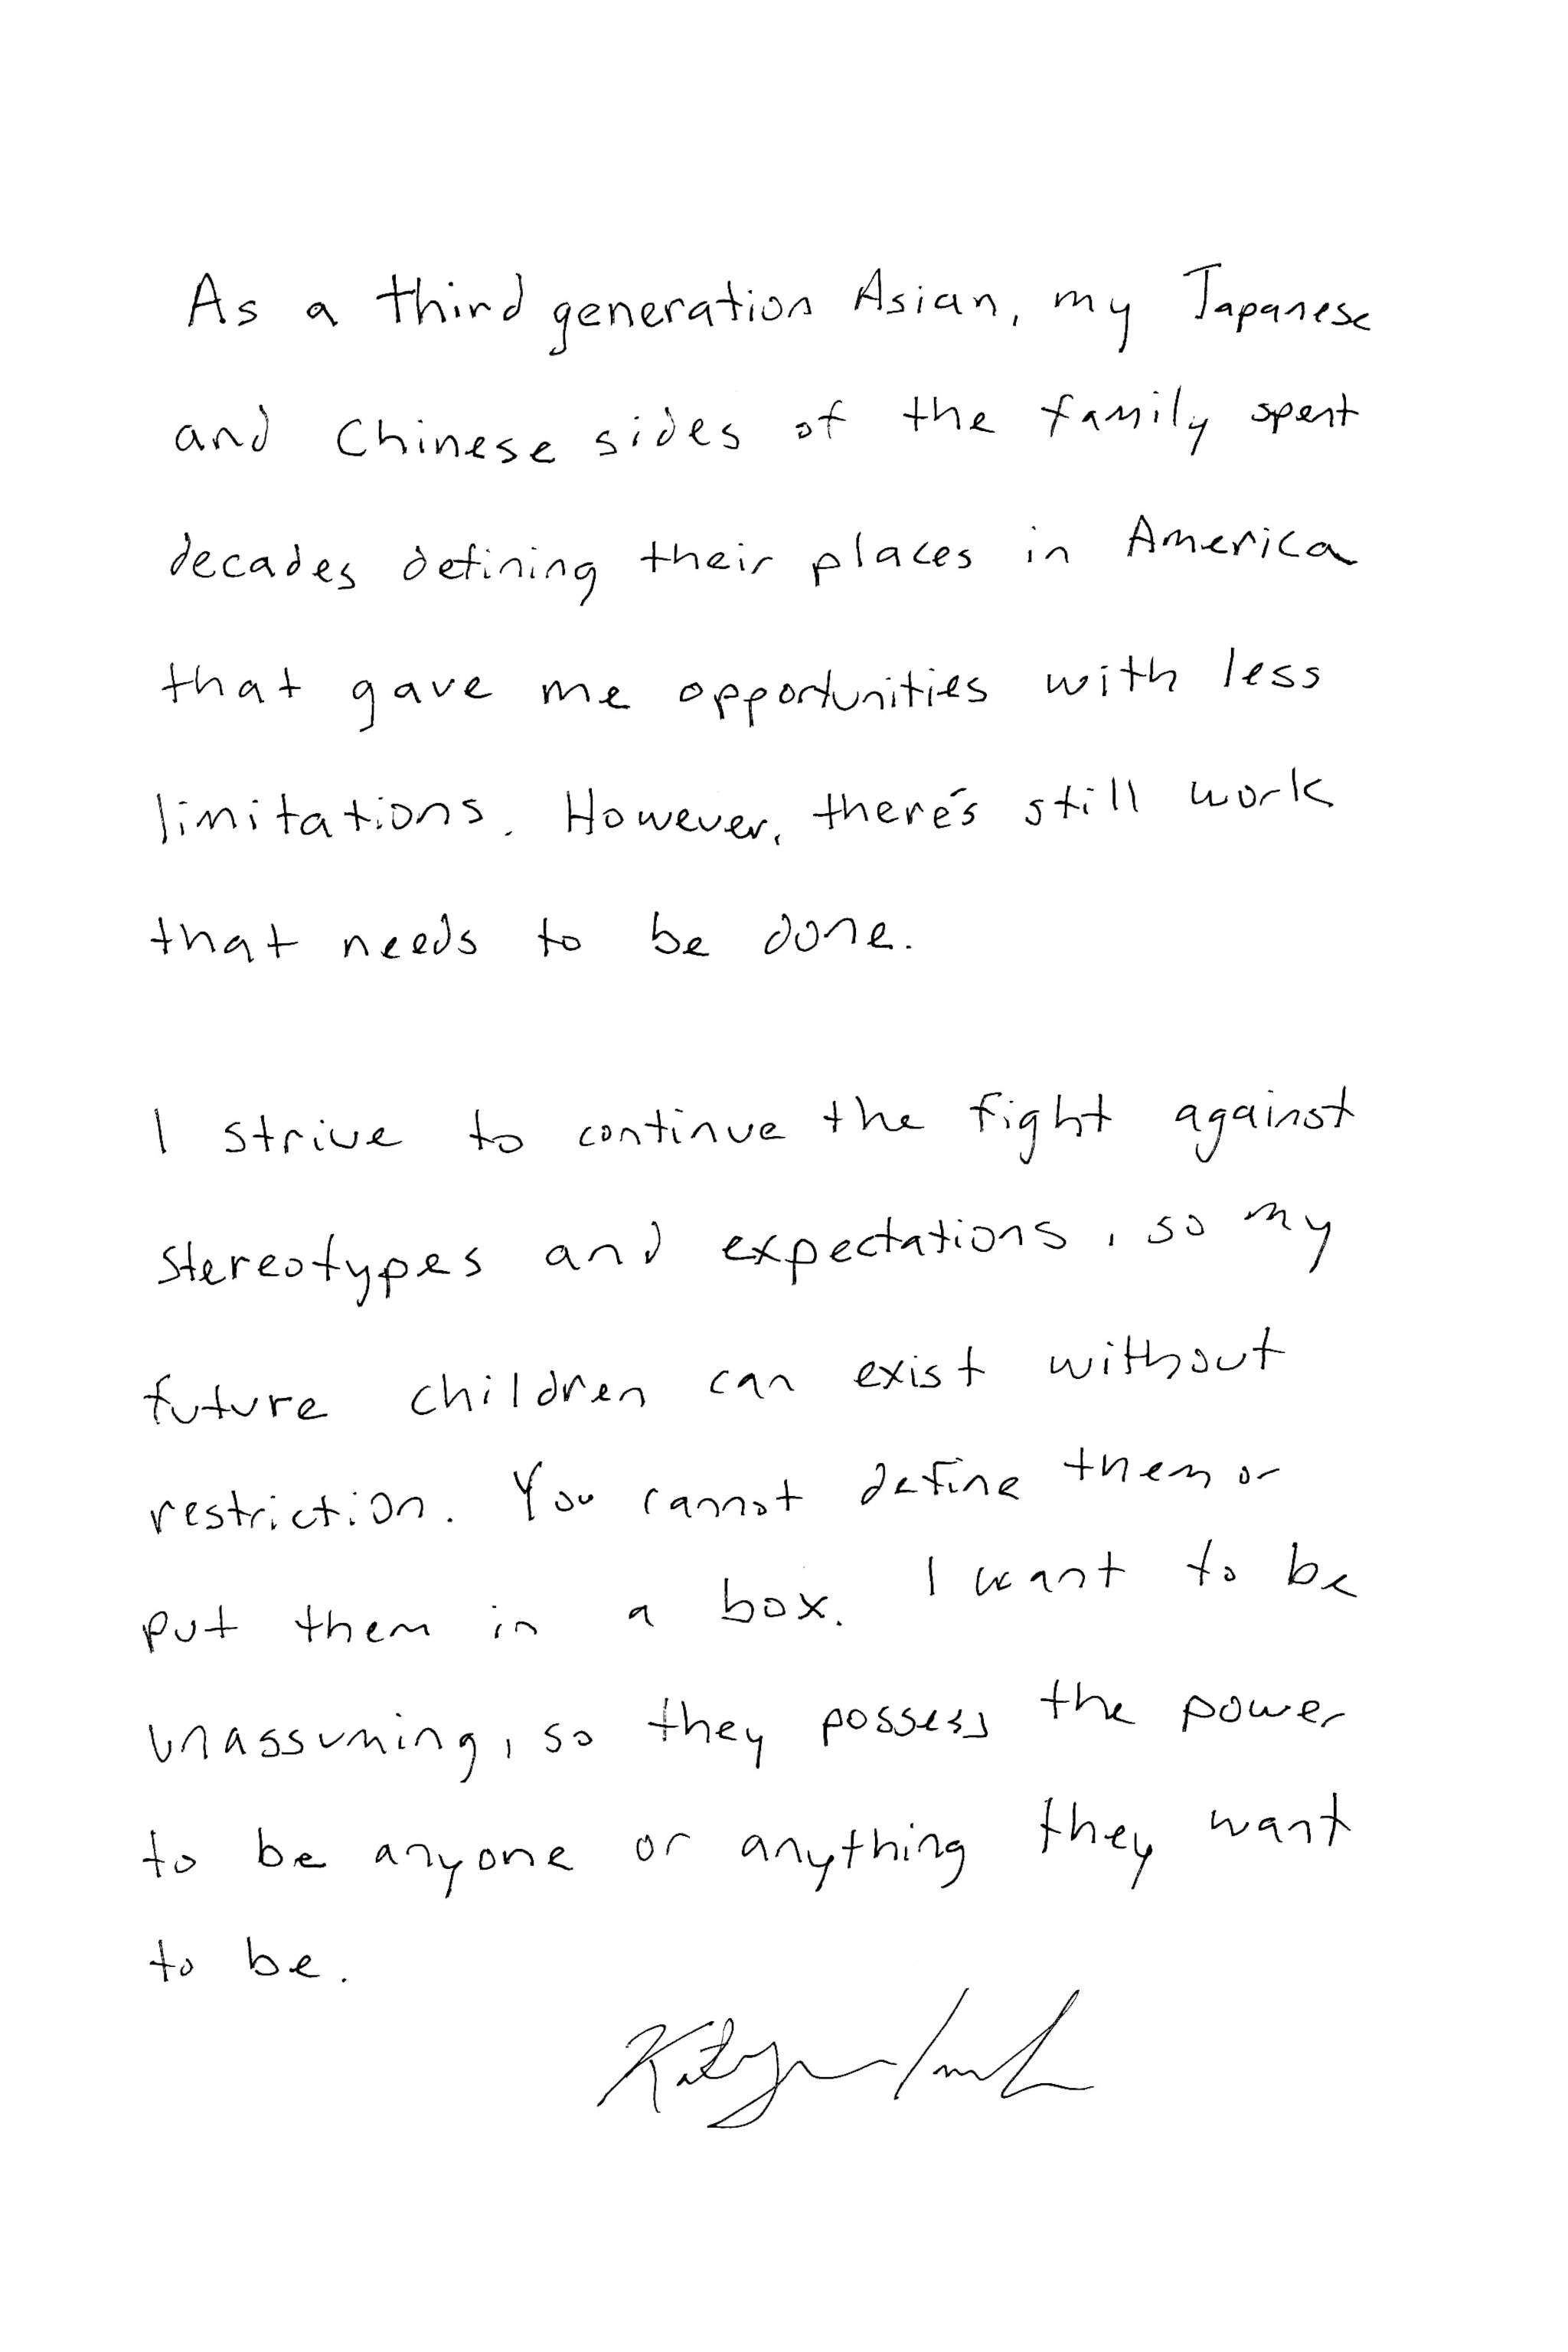 As a third generation Asian, my Japanese
and Chinese sides of the family spent
decades defining their places in America
that gave me opportunities with less
limitations. However, there's still work
that needs to be done.
I strive to continue the fight against
stereotypes and expectations, so my
future children can exist without
restriction. You cannot define them or
put them in a box. I want to be
unassuming, so they possess the power
to be anyone or anything they want
to be.